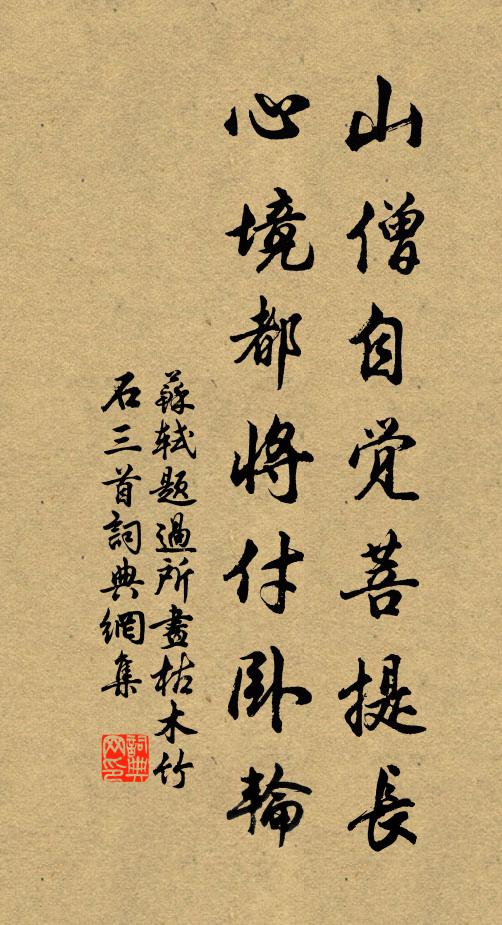 山僧自觉菩提長
心境都將付卧輪
蘇軾題過所畫枯木竹
石三首詞典網集
詞典
网印